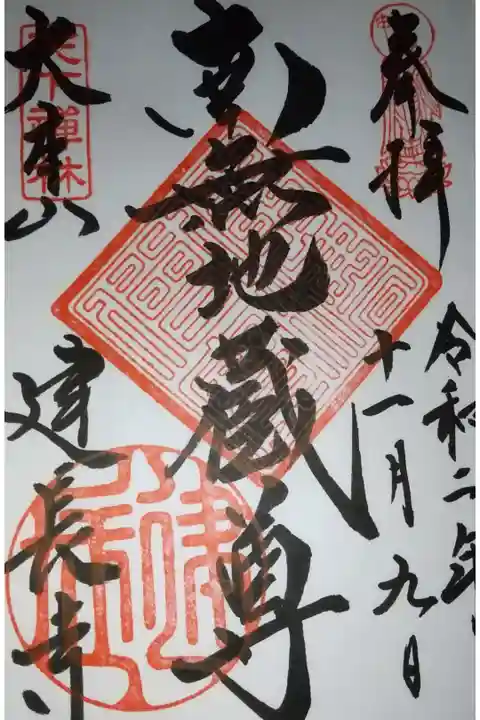 奉拝
令和二年
十一月九日
南無地蔵尊
天下禅林
大本山
建長寺